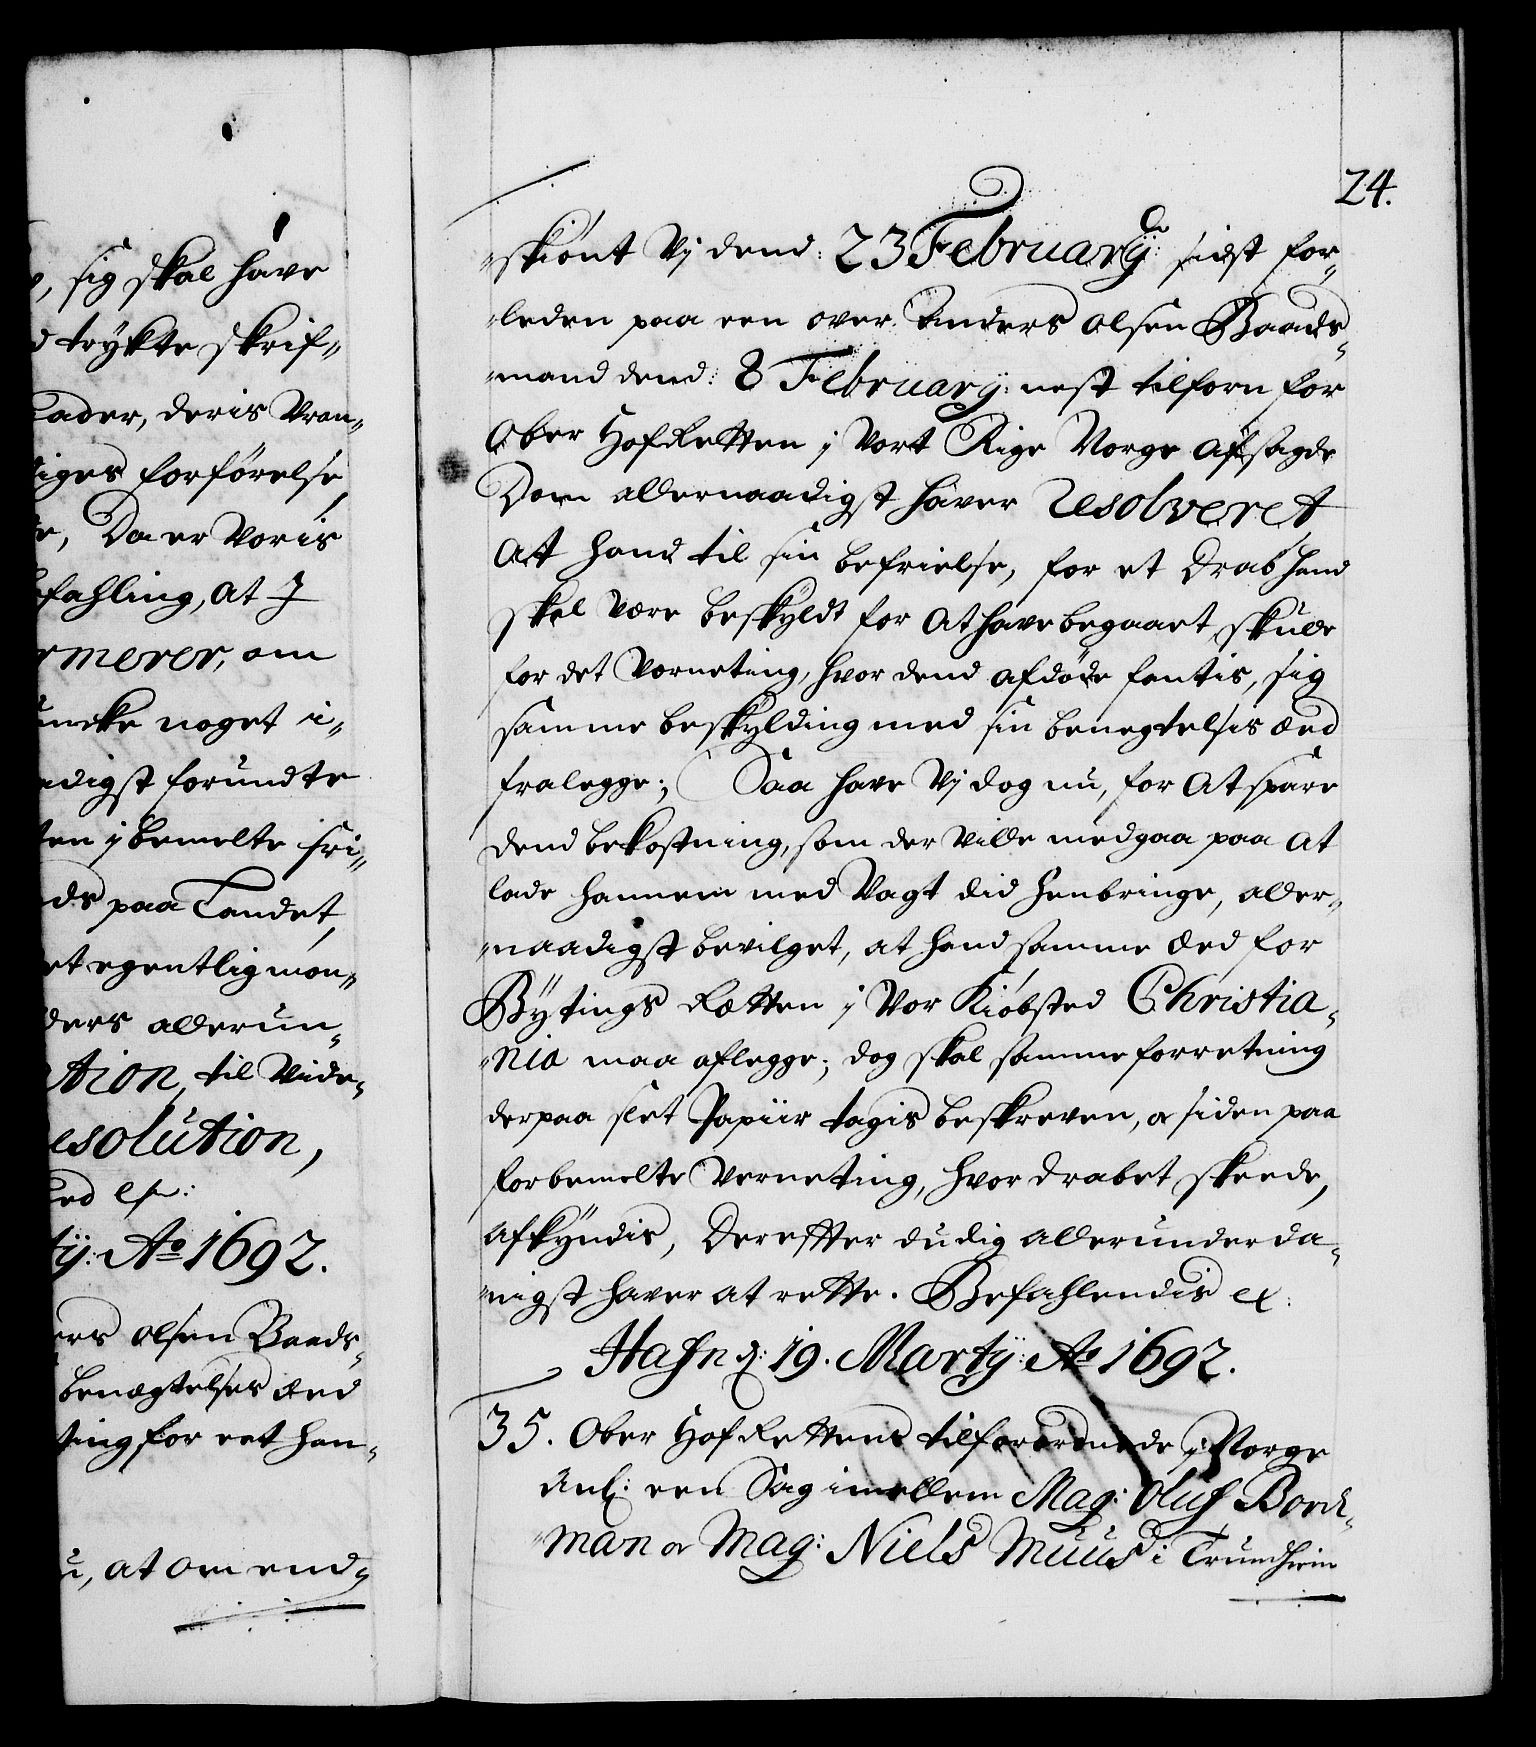 , sig skal have
trykte skrif„
Lader, deris Vran„
diges forførelse
, Da er Voris
befahling, at I
rmerer, om
uncke noget i„
adigst forundte
ten j bemelte fri„
ds paa Landet,
et egentlig mon„
ders allerun„
ation, til Vide„
esolution,
ty: Ao 1692.
ers Olsen Baads„
benægtelses Eed
ting for eet han„
u, at om end„
24.
„skiönt Vj dend: 23 Februarij sidst for„
„leden paa een over Anders Olsen Baads„
„mand dend: 8 Februarij nest tilforn for
Ober HofRetten j Vort Rige Norge afsagde
Dom allernaadigst haver Resolveret
Att hand til sin befrielse, for et Drab hand
skal være beskyldt for at have begaaet, skulle
for det Værneting, hvor dend afdøde fantis, sig
samme beskylding med sin benegtelsis Æed
fralegge; Saa have Vj dog nu, for at spare
dend bekostning, som der Ville medgaa paa at
lade hannem med Vagt did henbringe, aller„
„naadigst bevilget, at hand samme Æed for
Bytings Rætten j Vor Kiøbsted Christia„
„nia maa aflegge; dog skal samme forretning
derpaa slet Papiir tagis beskreven, og siden paa
forbemelte Verneting, hvor drabet skeede,
afkyndis, Derefter du dig allerunderda„
„nigst haver at rette. Befahlendis etc:
Hafn d: 19. Martij Ao 1692.
35. Ober HofRettens tilforordnede j Norge
Anl: een Sag imellem Mag: Oluf Bord„
„man og Mag: Niels Muus i Trundhiem